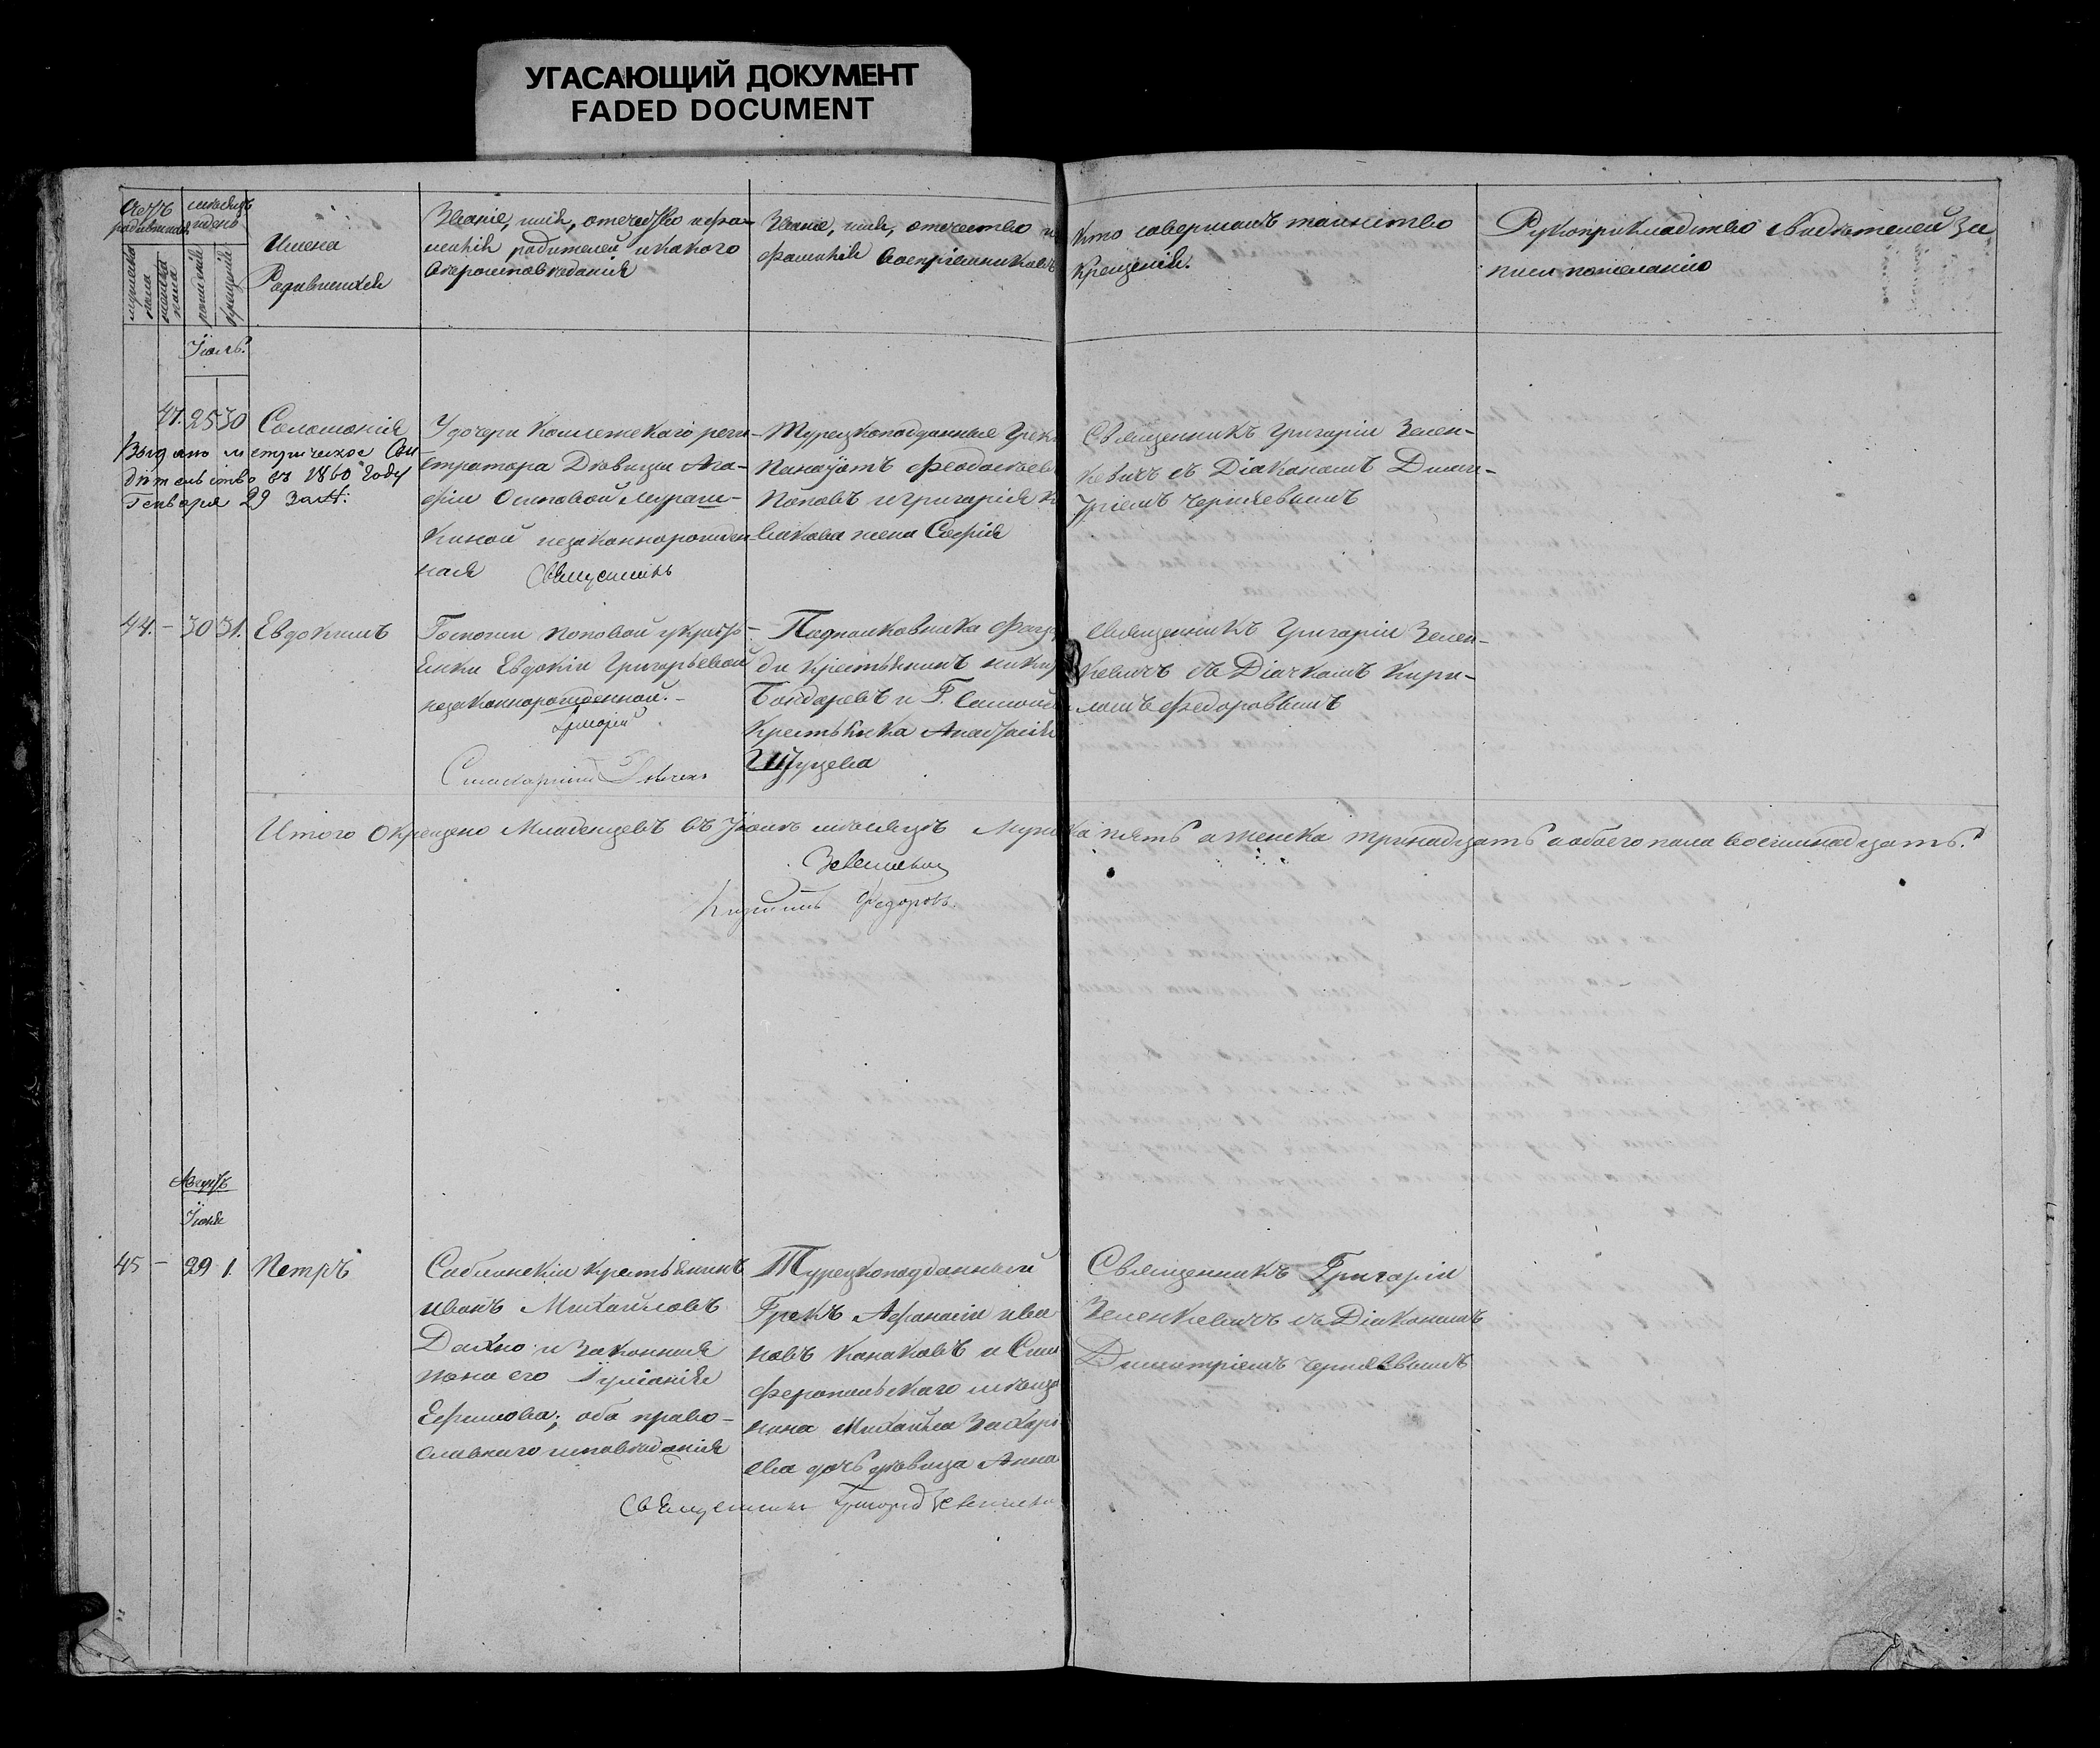 УГАСАЮЩИЙ ДОКУМЕНТ
FADED DOCUMENT
Счетъ родившихся
мужеска пола
женска пола
рожденія
крещенія
Имена
Родившихся
Званіе, имя, отечество и фа-
милія родителей и какого
вѣроисповѣданія
Званіе, имя, отечество и
фамилія воспріемниковъ
Кто совершалъ таинство
крещенія.
Рукоприкладство свидѣтелей за
писи по желанію
Іюль.
47. 25 30 Саломонія
Выдано метрическое Сви
дѣтельство въ 1860 году
Генваря 29 за №:
У дочери Коллежскаго реги-
стратора Дѣвицы Ага-
фіи Осиповой Мураш-
киной незаконнорожден
ная
Священникъ
Турецкоподданные Греки
Панаіотъ Феодосьевъ
Поповъ и Григорія
жена Софія
Священникъ Григорій Зелен-
кевичъ съ Діакономъ Дими-
тріемъ Чернявскимъ
44. - 30 31. Евдокимъ
Госпожи Поповой у крѣсть-
янки Евдокіи Григорьевой
незаконнорожденной. -
Григорій
Подполковника
ди крестьянинъ
Бондаревъ и Г.
крестьянка Анастасія
Священникъ Григорій Зелен-
кевичъ съ Дьячкомъ Кири-
ломъ Федоровымъ
Итого окрещено Младенцевъ въ Іюлѣ мѣсяцѣ Мужска пять а женска тринадцать а обоего пола восемнадцать.
Зеленкевич
Федоровъ.
Августъ
Іюля
45 - 29 1. Петръ
Саблинскій крестьянинъ
Иванъ Михайловъ
Дахно и законная
жена его Іуліанія
Ефимова; оба право-
славнаго исповѣданія
Турецкоподданный
Грекъ Афанасій Ива
новъ Канаковъ и Сим
феропольскаго мѣща
нина Михайла Захарь
ева дочь дѣвица Анна
Священникъ Григорій Зеленкеви
Священникъ Григорій
Зеленкевичъ съ Діакономъ
Димитріемъ Чернявскимъ